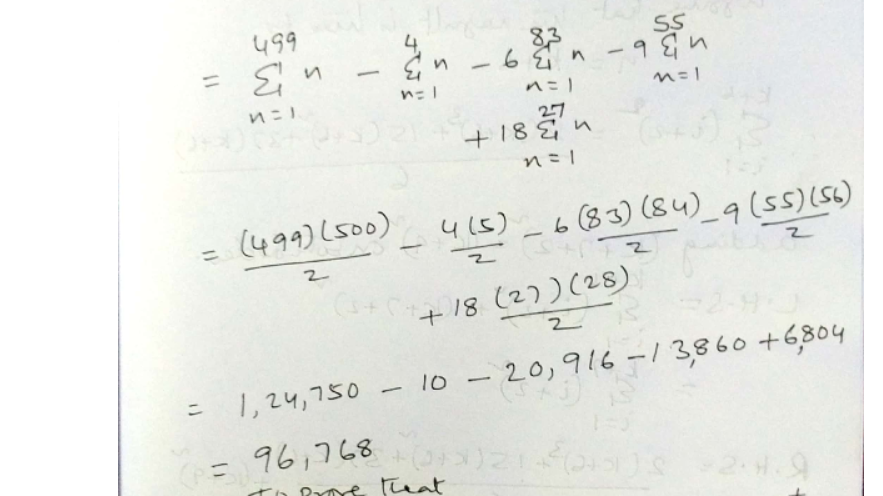 = 499 Σ n=1 n − 4 Σ n=1 n − 6 83 Σ n=1 n − 9 55 Σ n=1 n
+ 18 27 Σ n=1 n
= (499)(500)/2 − 4(5)/2 − 6 (83)(84)/2 − 9 (55)(56)/2
+ 18 (27)(28)/2
= 1,24,750 − 10 − 20,916 − 13,860 + 6,804
= 96,768
to prove that